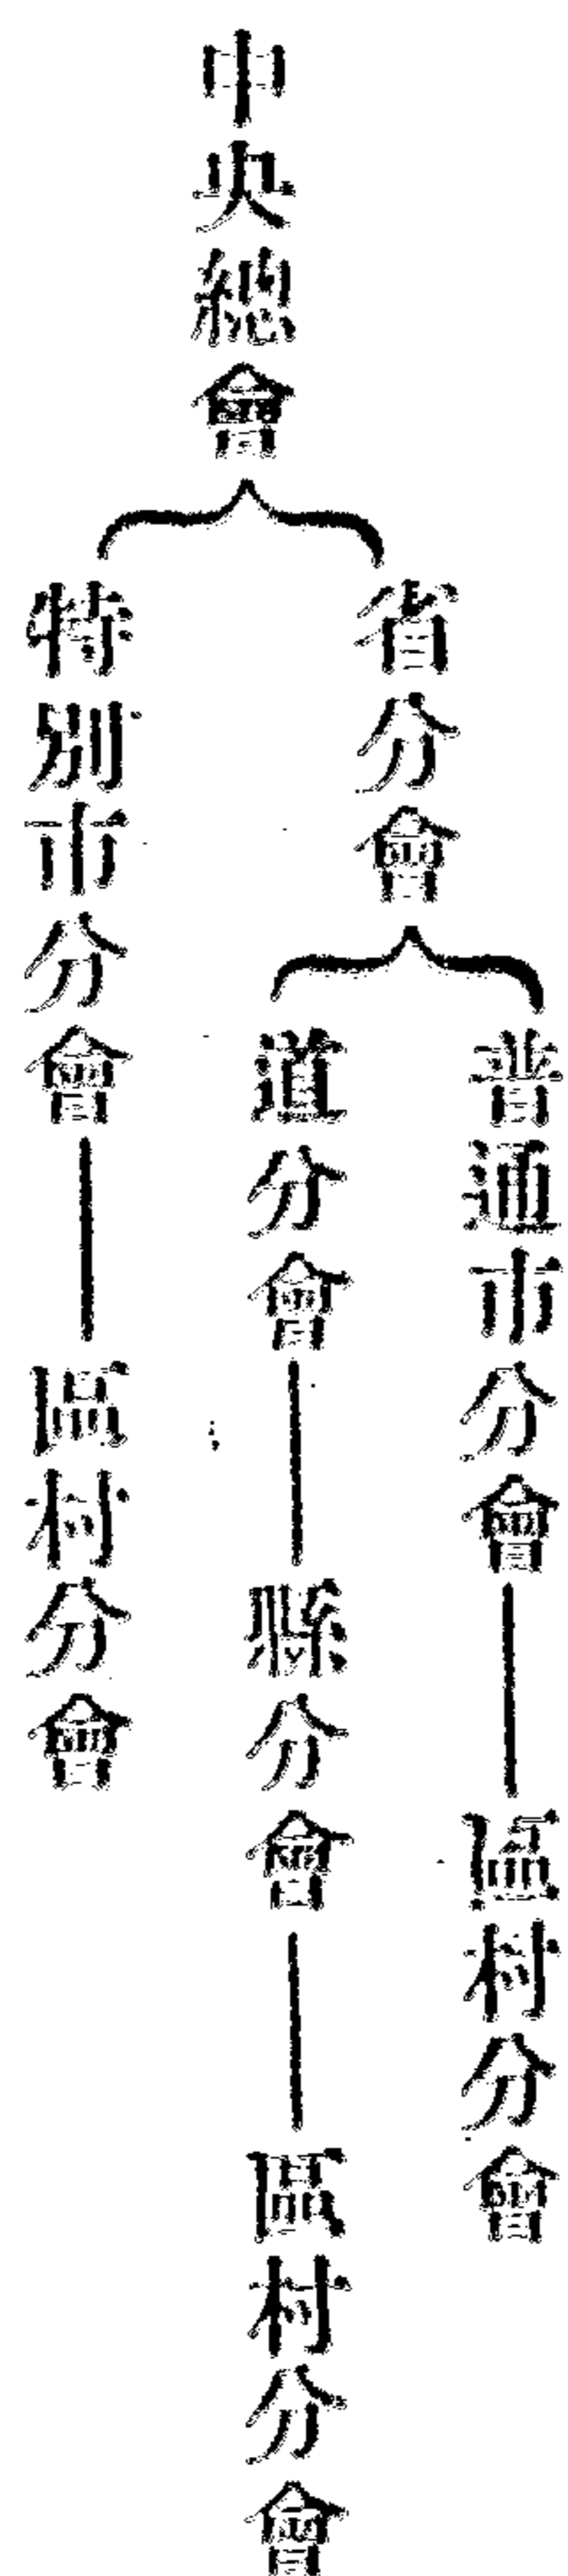 中央總會
省分會
普通市分會
區村分會
道分會
縣分會
區村分會
特別市分會
區村分會